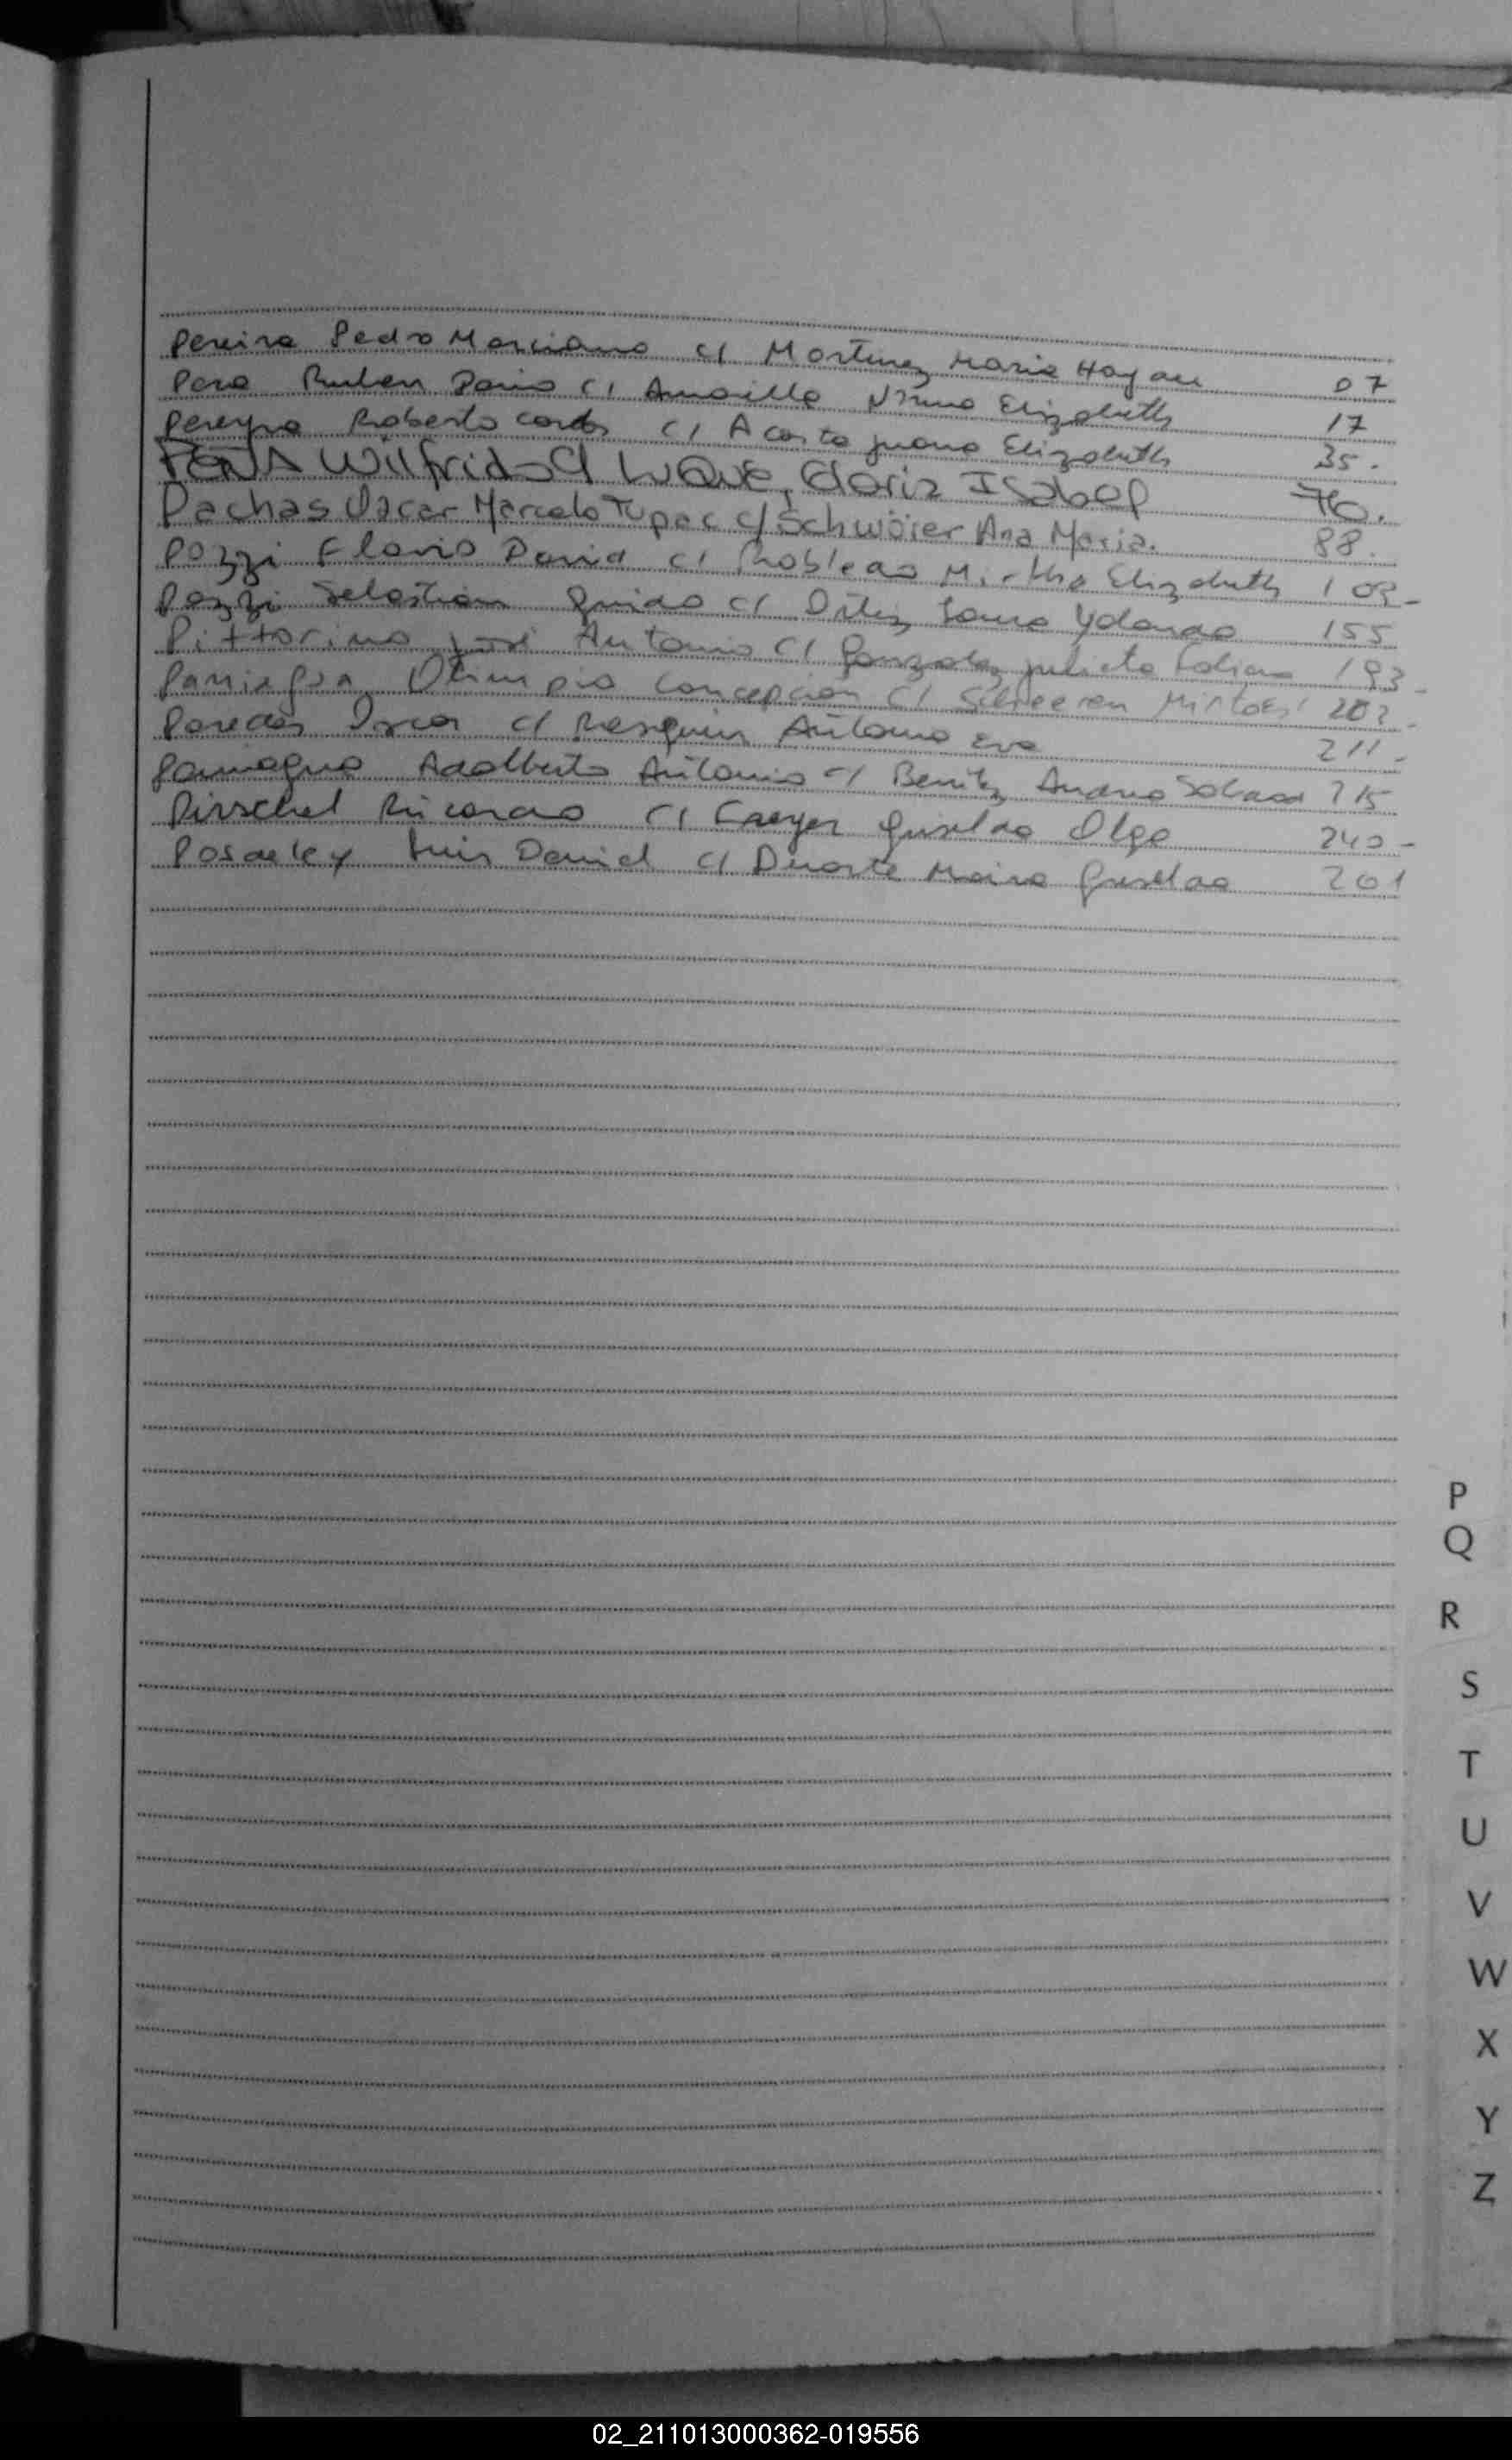 Pereira Pedro Marciano c/ Martinez Maria Haydee 07
Ruben Dario c/ Amarilla Norma Elizabeth 17
Pereyra Roberto Carlos c/ Acosta Juana Elizabeth 35.
Wilfrido c/ Gloria Isabel 76.
Pachas Oscar Marcelo Tupac c/ Schwöier Ana Maria. 88.
Pozzi Flavio David c/ Robledo Mirtha Elizabeth 109-
Pozzi Sebastian Guido c/ Ortiz Laura Yolanda 155
Pittorino José Antonio c/ Gonzalez Julieta 193-
Paniagua Olimpio Concepcion c/ 202-
Paredes Oscar c/ Antonia Eva 211-
Paniagua Adalberto Antonio c/ Benitez 215
Pirschel Ricardo c/ Griselda Olga 240-
Posdeley Luis Daniel c/ Duarte Maira Griselda 201
P
Q
R
S
T
U
V
W
X
Y
Z
02_211013000362-019556